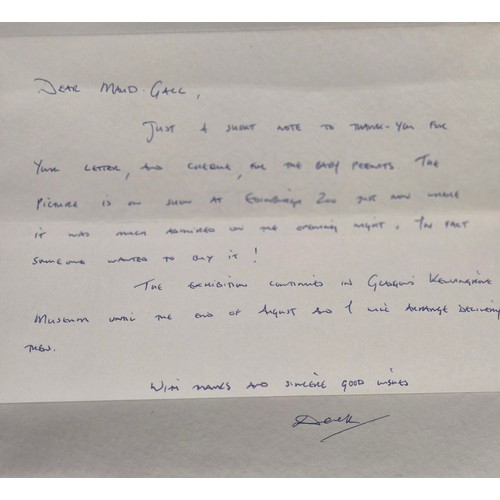 Dear Maud-Gall,
Just a short note to thank-you for
your letter, and cheque, for the baby The
picture is on show at Edinburgh Zoo just now where
it was much admired on the opening night. In fact
someone wanted to buy it!
The exhibition continues in Glasgow's Kelvingrove
Museum until the end of August and I will arrange delivery
then.
With thanks and sincere good wishes
Derek